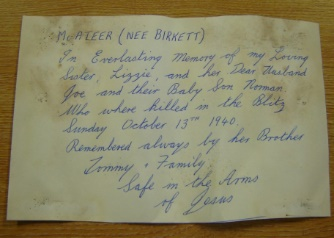 McATEER (NEE BIRKETT)
In Everlasting Memory of my Loving
Sister, Lizzie, and her Dear Husband
Joe and their Baby Son Norman
Who where killed in the Blitz
Sunday October 13TH 1940.
Remembered always by her Brother
Tommy + Family
Safe in the Arms
of Jesus